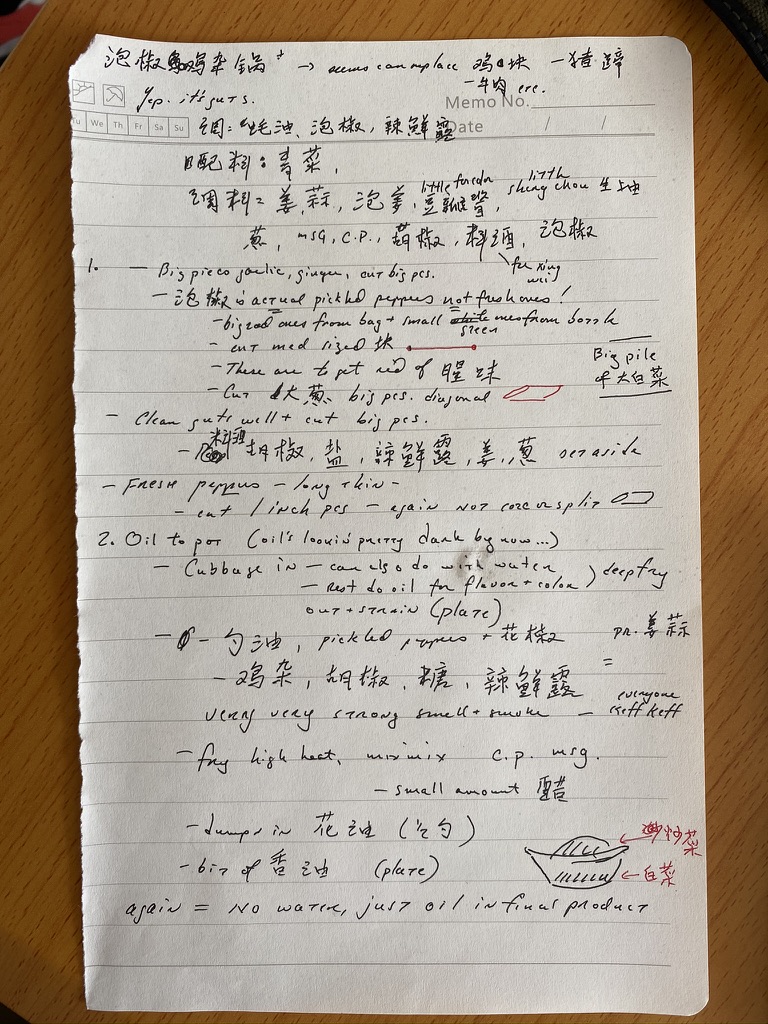 泡椒鸡杂锅 → seems can replace 鸡块 一猪蹄
Yep. it's guts. 一牛肉 etc.
Memo No.
We Th Fr Sa Su Date / /
调: 蚝油、泡椒, 辣鲜露
配料: 青菜,
调料: 姜, 蒜, 泡姜, 豆瓣酱, little little sheng chou 生抽
葱, MSG, C.P., 胡椒, 料酒, 泡椒
for xing wei
1. — Big piece garlic, ginger, cut big pcs.
— 泡椒 is actual pickled peppers not fresh ones!
- big red ones from bag + small green ones from bottle
- cut med sized 块
- These are to get rid of 腥味
Big pile of 大白菜
- Cut 大葱 big pcs. diagonal
- Clean guts well + cut big pcs.
- 料酒 胡椒, 盐, 辣鲜露, 姜, 葱 set aside
- Fresh peppers - long thin -
- cut 1 inch pcs - again NOT core or split
2. Oil to pot (oil's lookin' pretty dark by now...)
- Cabbage in - can also do with water
- Rest do oil for flavor + color ) deep fry
out + strain (plate)
- 一勺油, pickled peppers + 花椒 姜蒜
- 鸡杂, 胡椒, 糖, 辣鲜露
very very strong smell + smoke - everyone keff keff
- fry high heat, mix mix C.P. msg.
- small amount 醋
- dumps in 花油
- bit of 香油 (plate)
炒菜
白菜
again = No water, just oil in final product